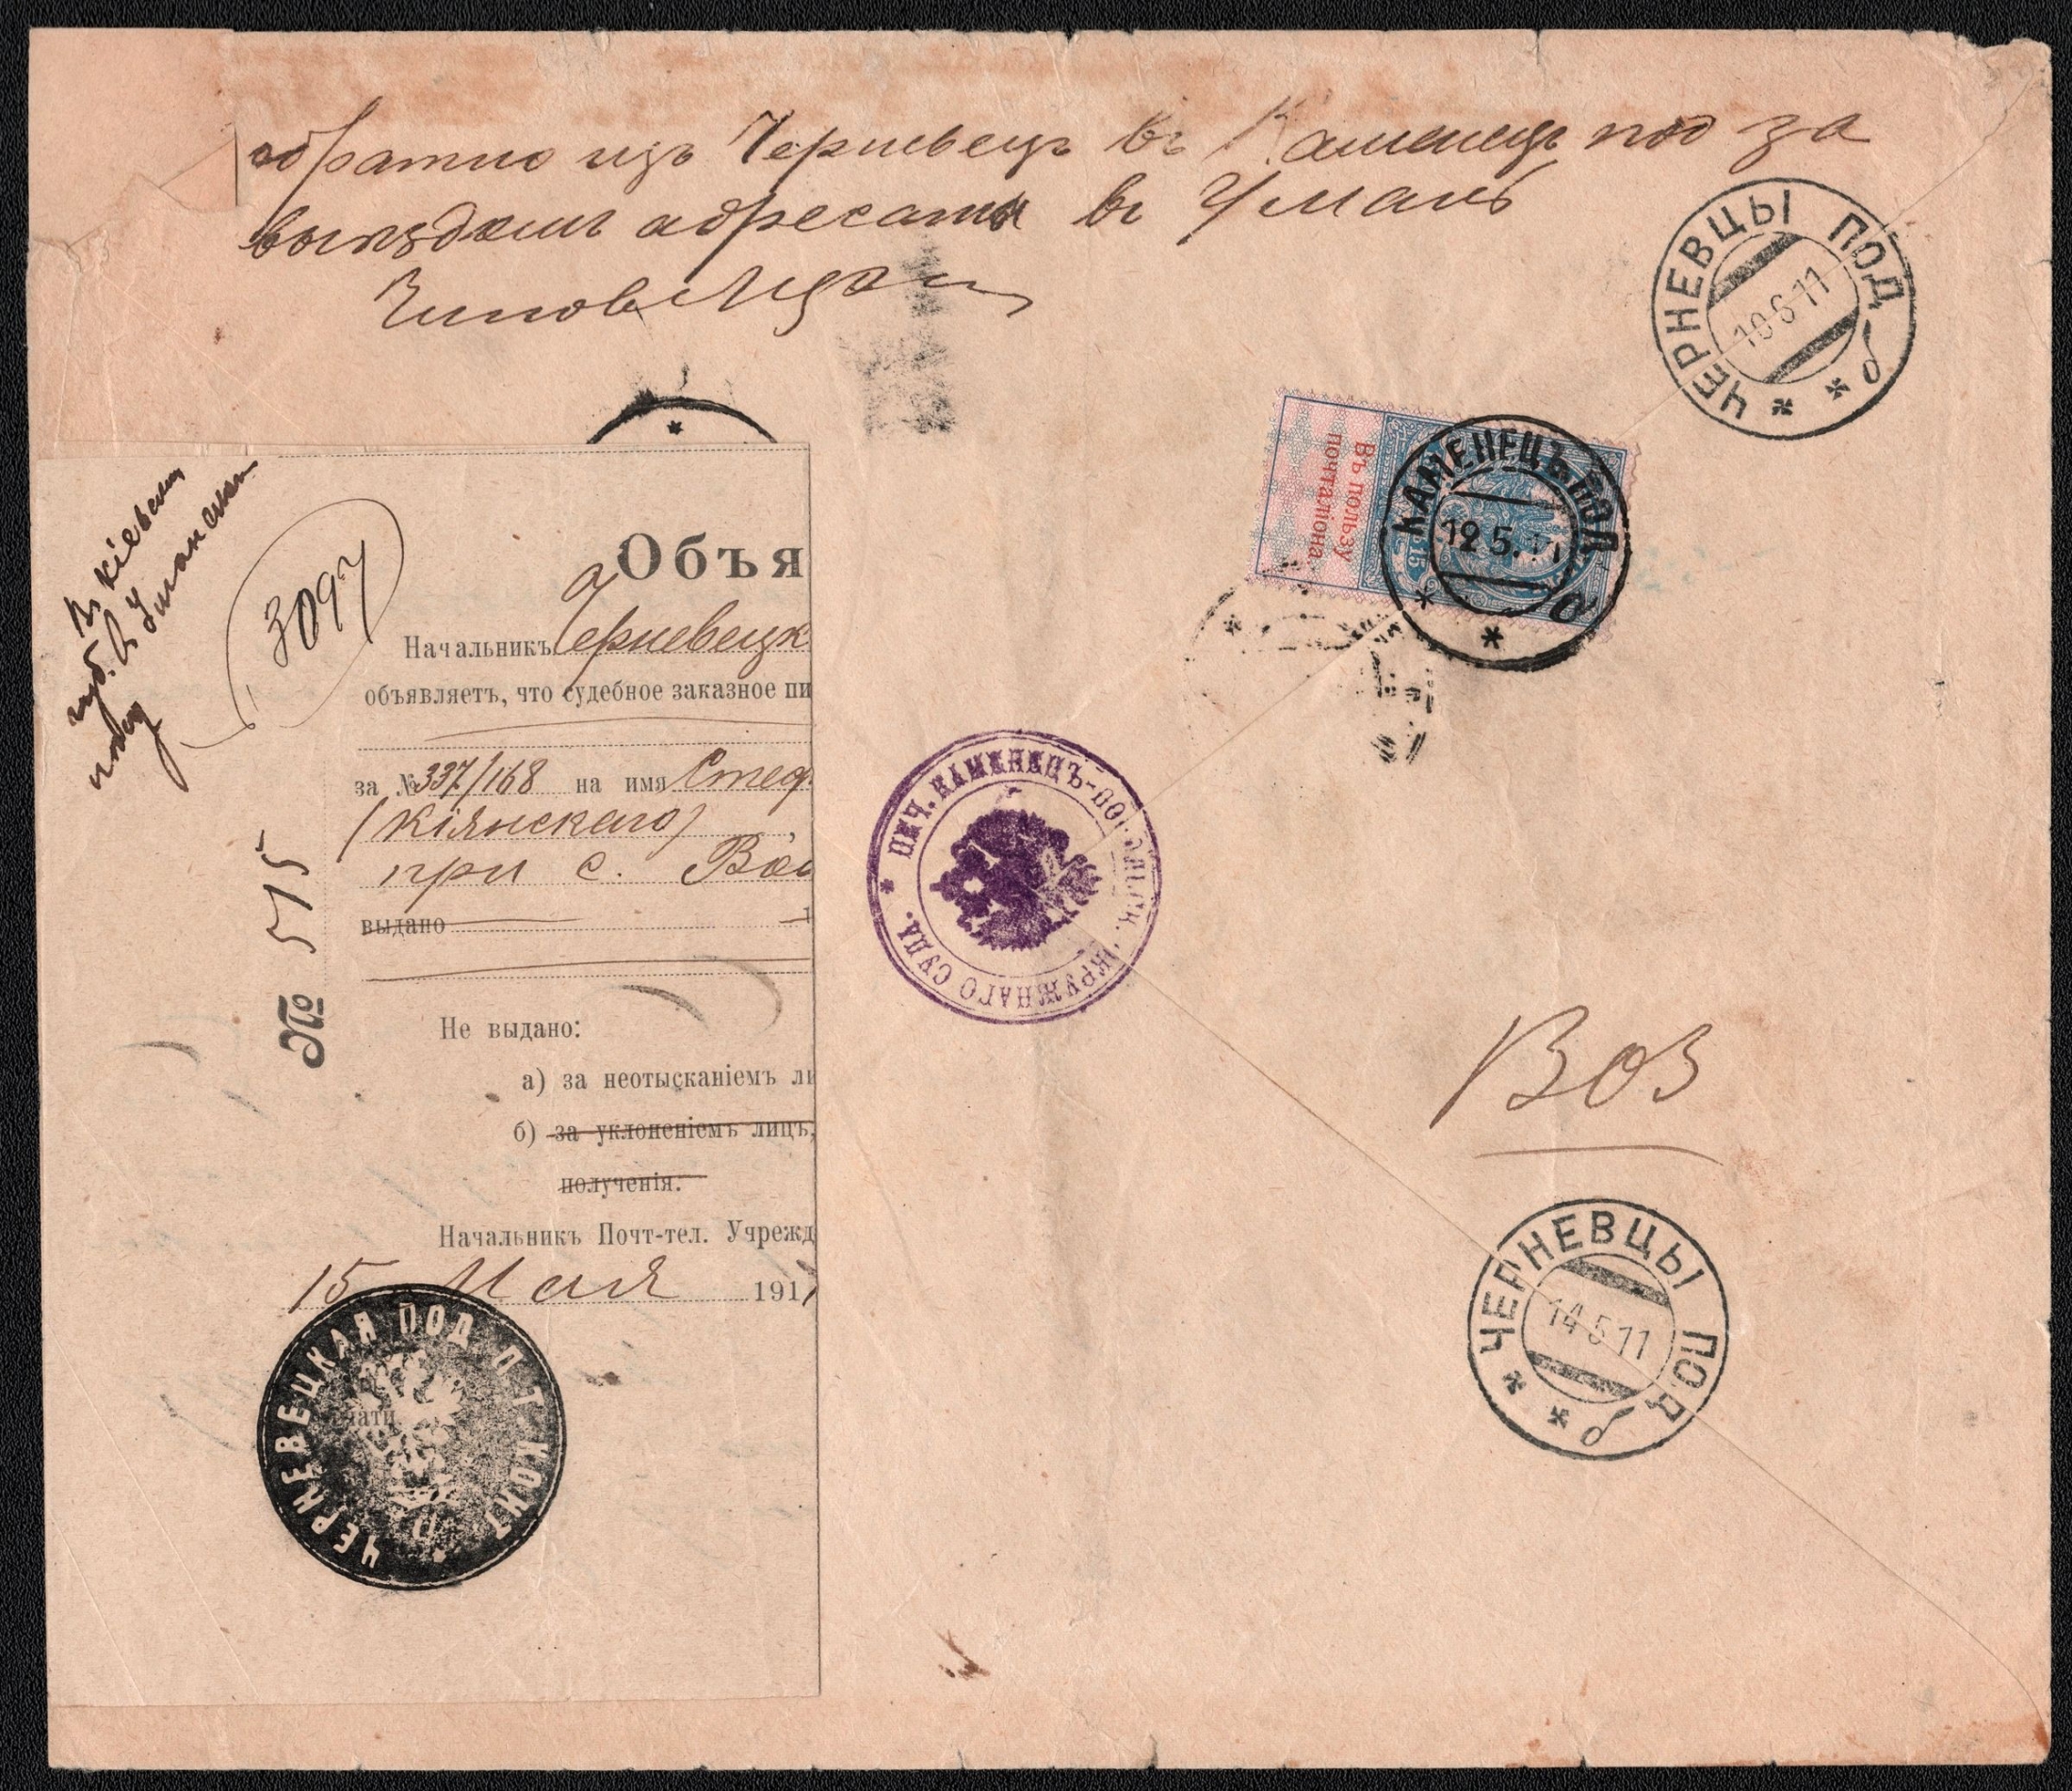 обратно изъ Черневецъ въ Каменецъ под за
выѣздомъ адресата въ Умань
ЧЕРНЕВЦЫ ПОД б
10 6 11
Въ пользу
почталіона.
15
КАМЕНЕЦЪ ПОД
12 5. 11
В Кіевскую
губ. В Уманскій
3094
Объя
Начальникъ Черневецк
объявляетъ, что судебное заказное пи
за № 337/168 на имя Стеф
(Кіянскаго)
при с.
выдано
№ 515
Не выдано:
а) за неотысканіемъ ли
б) за уклоненіемъ лицъ,
полученія.
Начальникъ Почт-тел. Учрежд
15 Мая 1911
ЧЕРНЕВЕЦКАЯ ПОД П Т КОНТ
чати
ПЕЧ. КАМЕНЕЦЪ-ПОДОЛЬСК. ОКРУЖНАГО СУДА.
Воз
ЧЕРНЕВЦЫ ПОД б
14 5 11